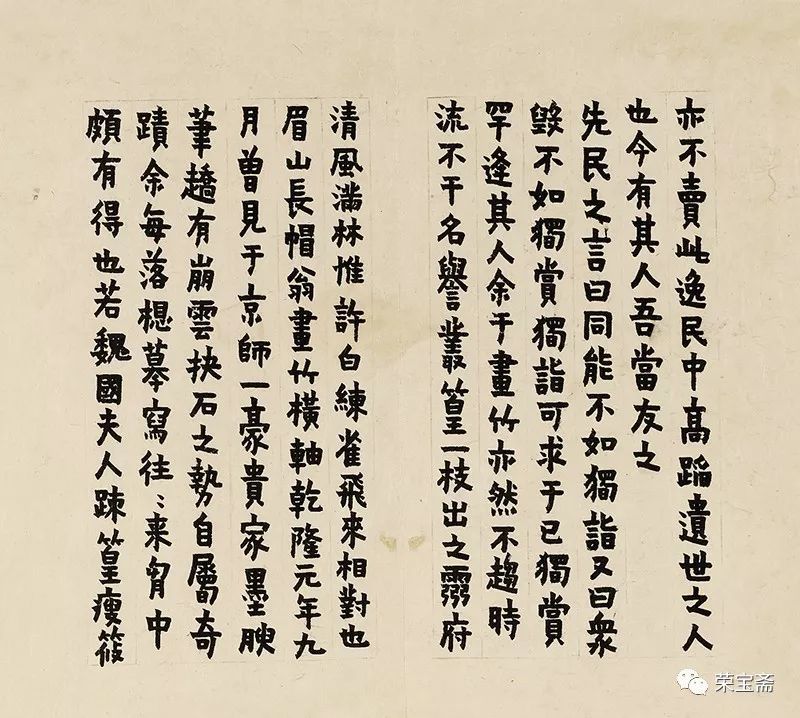 亦不賣此逸民中高蹈遺世之人
也今有其人吾當友之
先民之言曰同能不如獨詣又曰衆
毀不如獨賞獨詣可求于己獨賞
罕逢其人余于畫竹亦然不趨時
流不干名譽叢篁一枝出之靈府
清風滿林惟許白練雀飛來相對也
眉山長帽翁畫竹橫軸乾隆元年九
月曾見于京師一豪貴家墨腴
筆趫有崩雲抉石之勢自屬奇
蹟余每落想摹寫往〻来匈中
頗有得也若魏國夫人踈篁瘦筱
荣宝斋